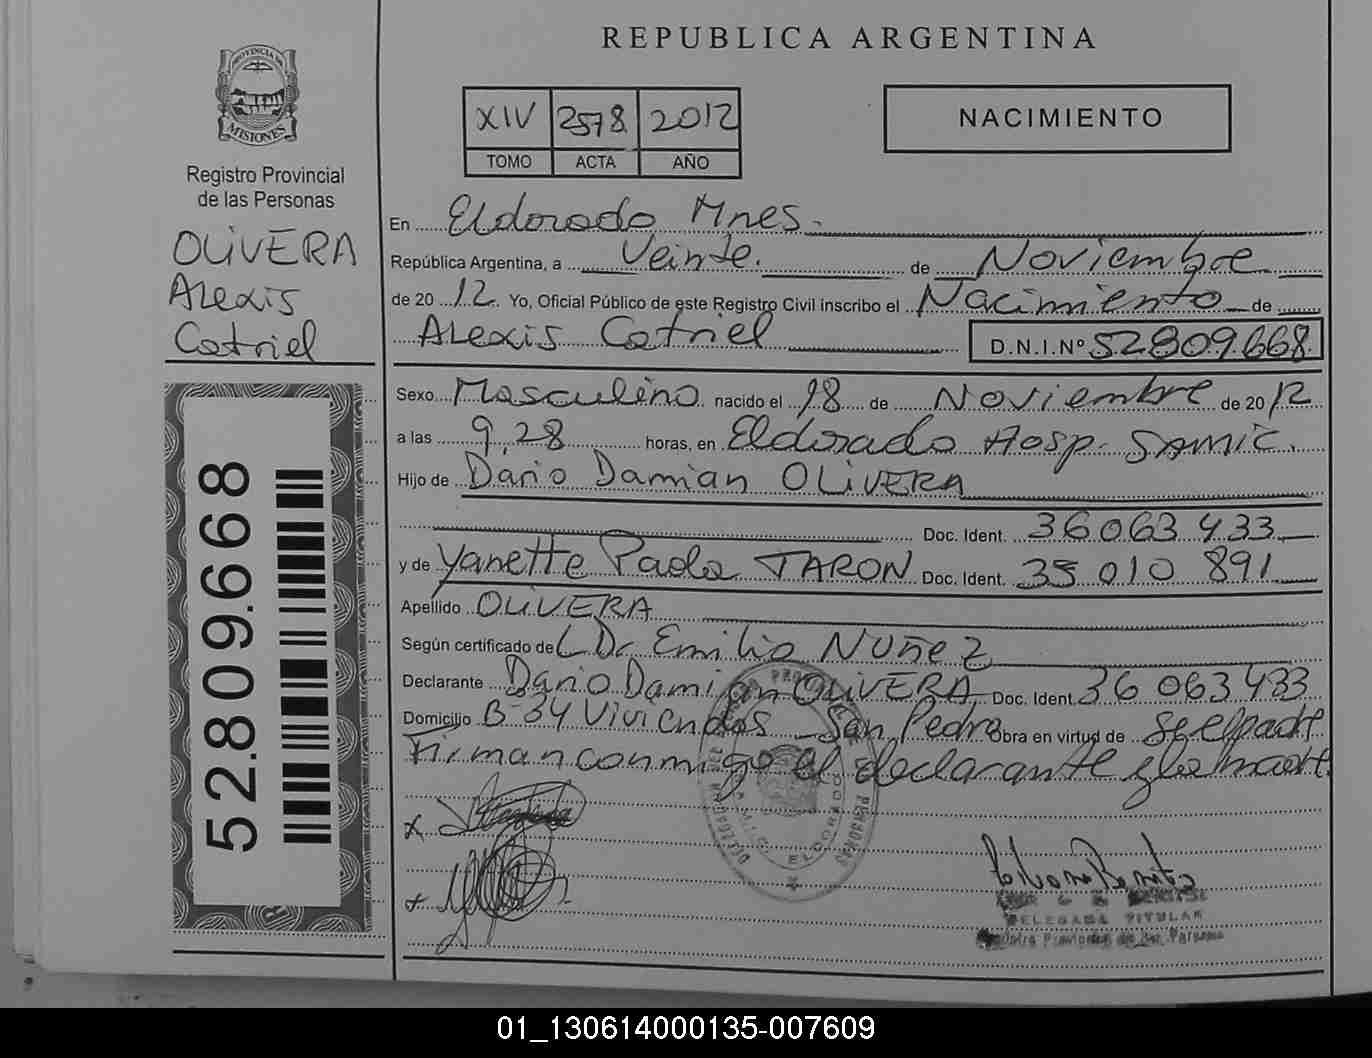 REPUBLICA ARGENTINA
PROVINCIA DE
MISIONES
Registro Provincial
de las Personas
OLIVERA
Alexis
Catriel
52.809.668
XIV 2578 2012
TOMO ACTA AÑO
NACIMIENTO
En Eldorado Mnes.
República Argentina, a Veinte. de Noviembre
de 20 12. Yo, Oficial Público de este Registro Civil inscribo el Nacimiento de
Alexis Catriel D.N.I.Nº 52809.668
Sexo Masculino nacido el 18 de Noviembre de 20 12
a las 9,28 horas, en Eldorado Hosp. SAMIC.
Hijo de Dario Damian OLIVERA
Doc. Ident. 36063433
y de Yanette Paola TARON Doc. Ident. 35 010 891
Apellido OLIVERA
Según certificado de L Dr Emilio NUÑEZ
Declarante Dario Damian OLIVERA Doc. Ident. 36 063 433
Domicilio B-34 Viviendas - San Pedro Obra en virtud de se el padre
Firman conmigo el declarante y la madre
x
x
ELDORADO
DELEGADA TITULAR
01_130614000135-007609